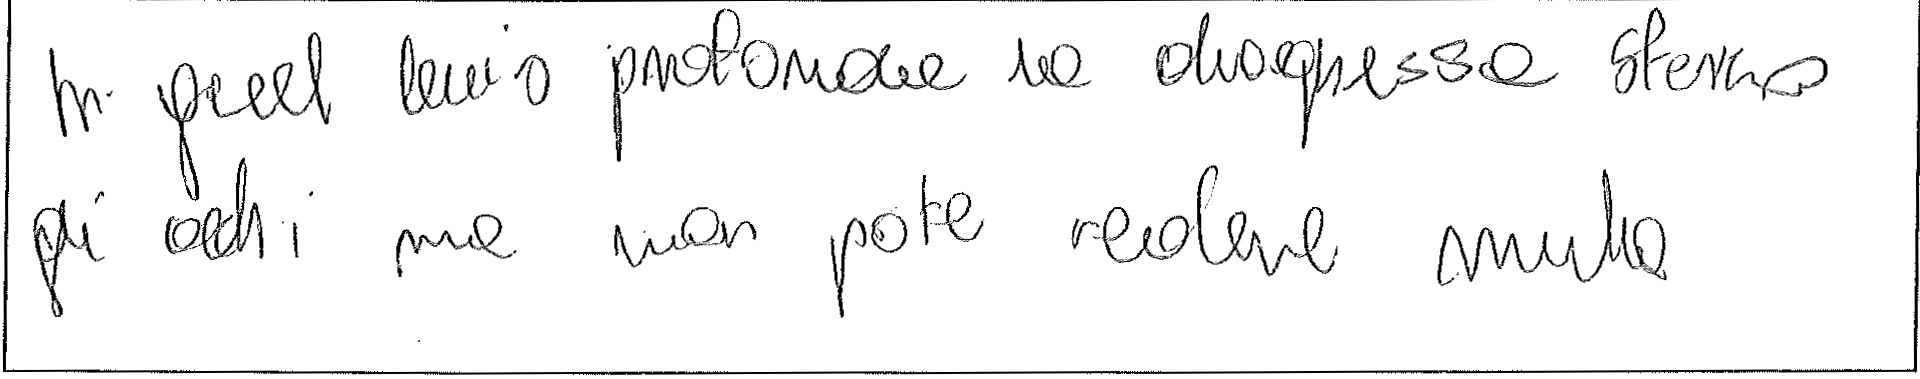 In quel buio profondo la dragessa sterno
gli occhi ma non potè vedere nulla